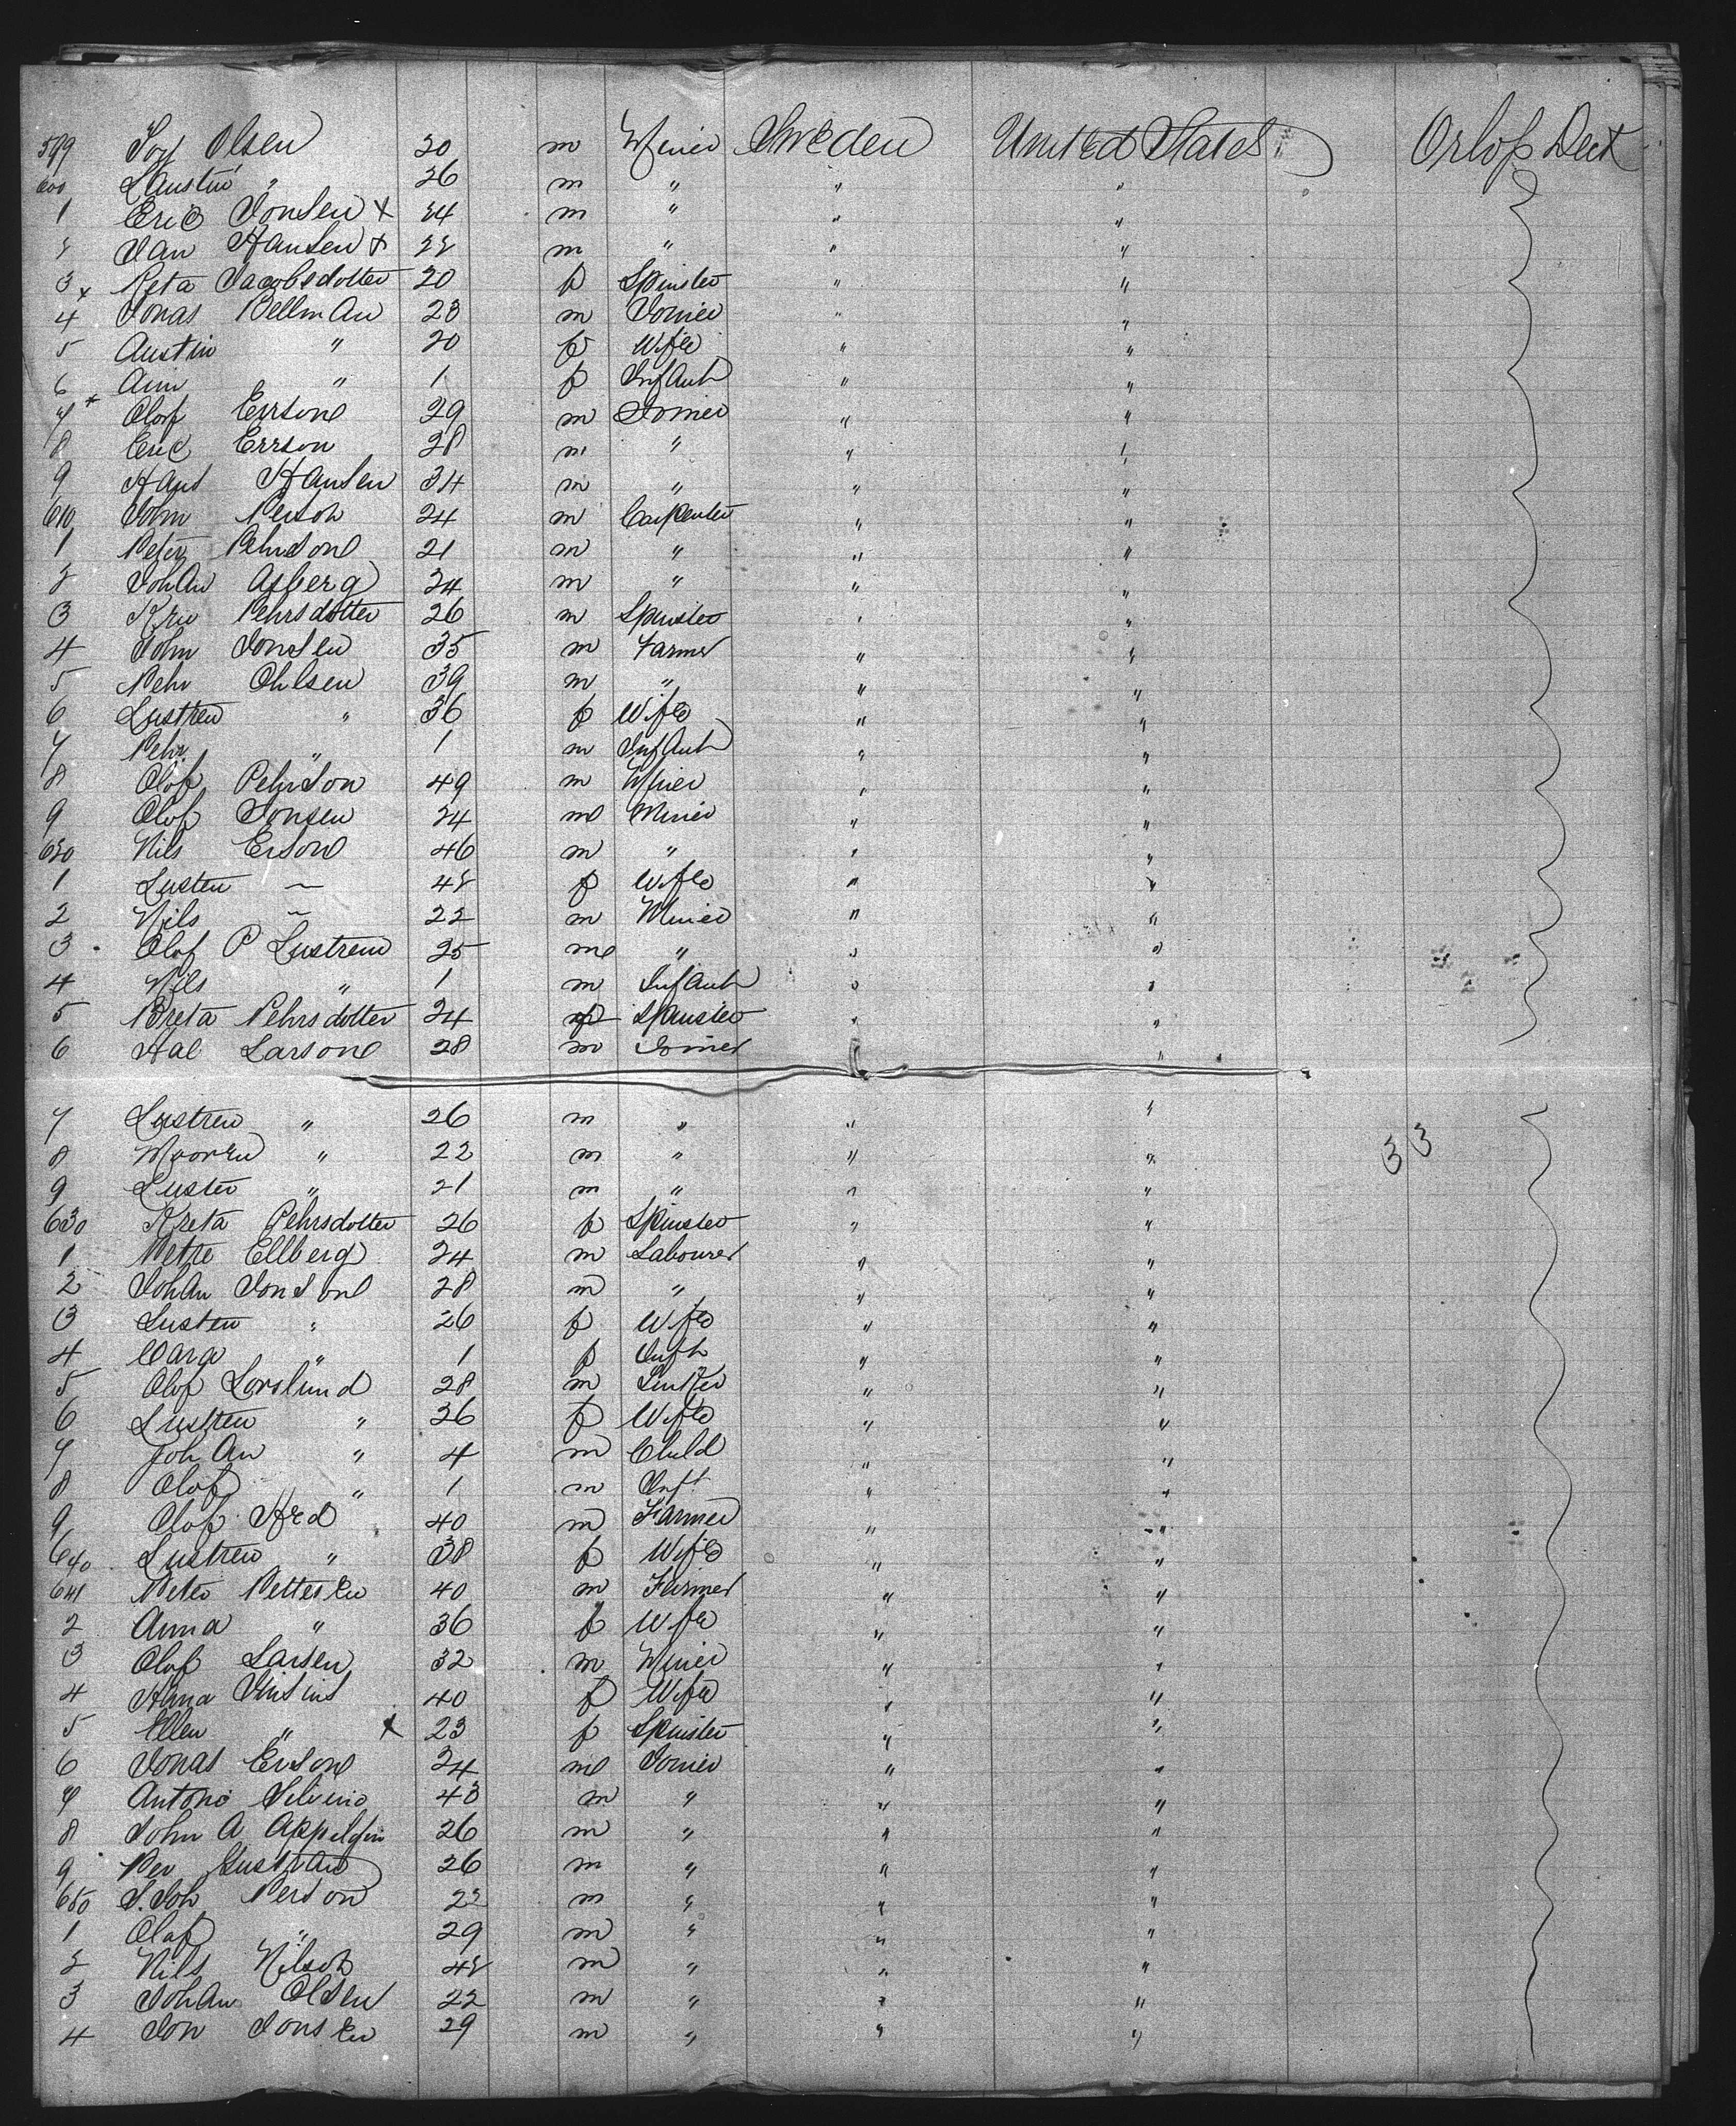 599 Joy Olsen 20 m Miner Sweden United States Orlop Deck
600 Laustin " 26 m " " "
1 Eric Jonsen x 24 m " " "
2 Jan Hansen x 22 m " " "
3 x Reta Jacobsdotter 20 f Spinster " "
4 Jonas Bellman 23 m Joiner " "
5 Austin " 20 f Wife " "
6 Ann " 1 f Infant " "
7 * Olof Errsone 29 m Joiner " "
8 Eric Errson 28 m " " "
9 Hans Hansen 34 m " " "
610 John Person 24 m Carpenter " "
1 Peter Pehrsone 21 m " " "
2 Johan Asberg 24 m " " "
3 Pehrsdotter 26 m Spinster " "
4 John Jonsen 35 m Farmer " "
5 Pehr Ohlsen 39 m " " "
6 Lustren " 36 f Wife " "
7 Pehr " 1 m Infant " "
8 Olof Pehrson 49 m Miner " "
9 Olof Jonsen 24 m Miner " "
620 Nils Ersone 46 m " " "
1 Lusten ~ 42 f Wife " "
2 Nils ~ 22 m Miner " "
3 Olof P Lustrem 25 m " " "
4 Nils " 1 m Infant " "
5 Breta Pehrsdotter 24 f Spinster " "
6 Hal Larsone 28 m Joiner " "
7 Lustren " 26 m " " "
8 " 22 m " " " 33
9 Luster " 21 m " " "
630 Kreta Pehrsdotter 26 f Spinster " "
1 Petre Ellberg 24 m Labourer " "
2 Johan Jonsone 28 m " " "
3 Lusten " 26 f Wife " "
4 Cara " 1 f Inft " "
5 Olof Lorslund 28 m " "
6 Lustren " 26 f Wife " "
7 Johan " 4 m Child " "
8 Olof " 1 m Inft " "
9 Olof Hed 40 m Farmer " "
640 Lustren " 38 f Wife " "
641 Peter Pettersen 40 m Farmer " "
2 Anna " 36 f Wife " "
3 Olof Larsen 32 m Miner " "
4 Anna 40 f Wife " "
5 Ellen " x 23 f Spinster " "
6 Jonas Ersone 24 m Joiner " "
7 Antono Silvino 43 m " " "
8 John A Appelgin 26 m " " "
9 Per Gustran 26 m " " "
650 S. Joh Person 22 m " " "
1 Olof " 29 m " " "
2 Nils Nilson 42 m " " "
3 Johan Olsen 22 m " " "
4 Jon Jonsen 29 m " " "